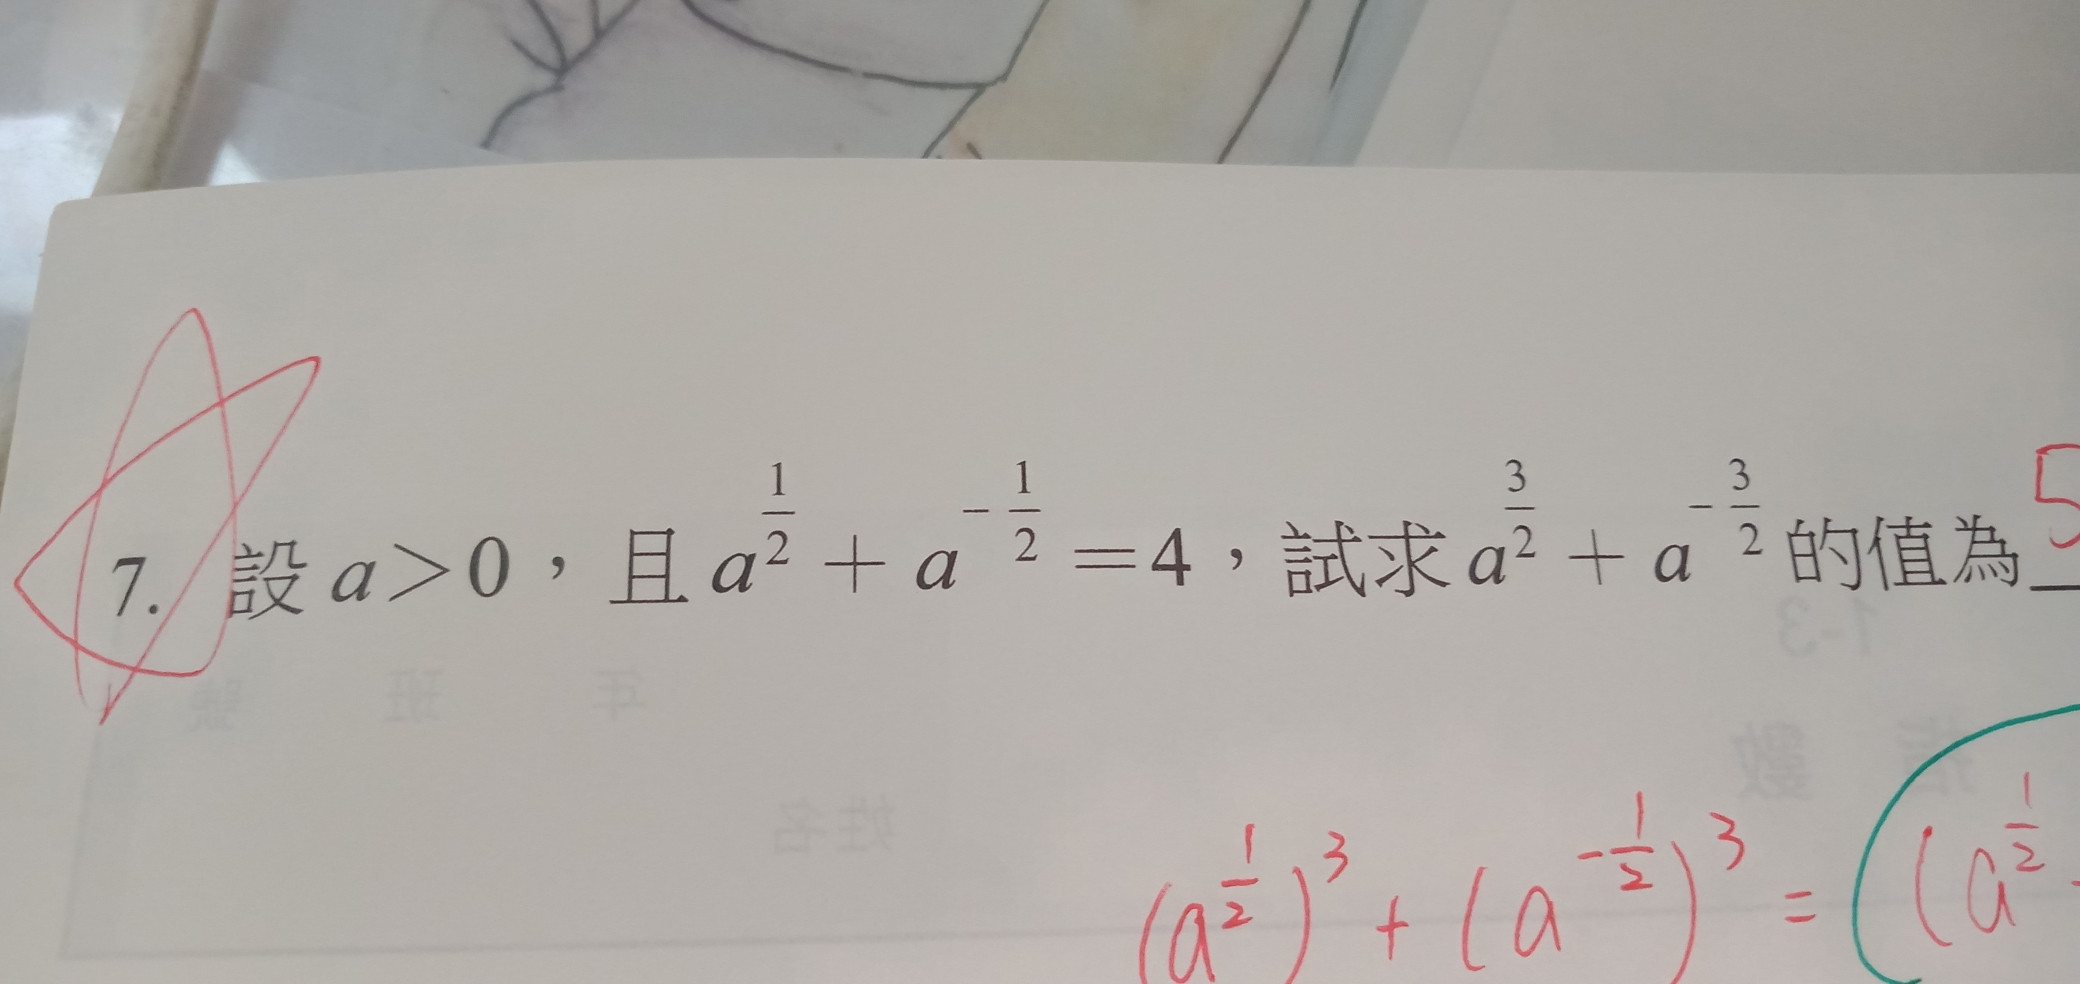 7. 設 a>0，且 a^{\frac{1}{2}} + a^{-\frac{1}{2}} =4，試求 a^{\frac{3}{2}} + a^{-\frac{3}{2}} 的值為 5
1-3
年 班 號
數
姓名
(a^{\frac{1}{2}})^3 + (a^{-\frac{1}{2}})^3 = ((a^{\frac{1}{2}}